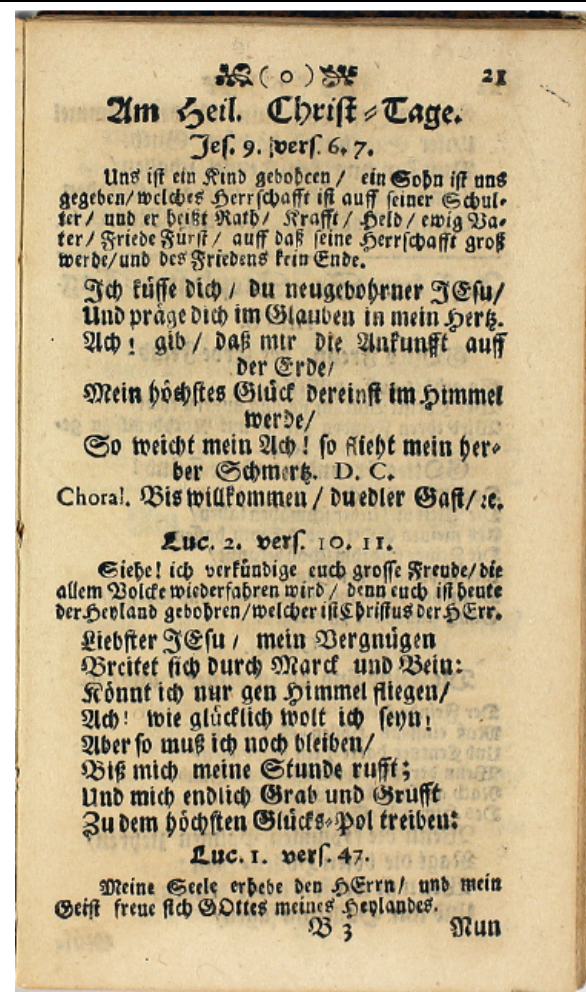 ( o ) 21
Am Heil. Christ-Tage.
Jes. 9. vers. 6. 7.
Uns ist ein Kind gebohren / ein Sohn ist uns
gegeben/welches Herrschafft ist auff seiner Schul-
ter / und er heißt Rath / Krafft / Held / ewig Va-
ter / Friede Fürst / auff daß seine Herrschafft groß
werde/und des Friedens kein Ende.
Ich küsse dich / du neugebohrner JEsu/
Und präge dich im Glauben in mein Hertz.
Ach! gib / daß mir die Ankunfft auff
der Erde/
Mein höchstes Glück dereinst im Himmel
werde/
So weicht mein Ach! so flieht mein her-
ber Schmertz. D. C.
Choral. Bis willkommen / du edler Gast/ ꝛc.
Luc. 2. vers. 10. 11.
Siehe! ich verkündige euch grosse Freude/die
allem Volcke wiederfahren wird / denn euch ist heute
der Heyland gebohren/welcher ist Christus der HErr.
Liebster JEsu / mein Vergnügen
Breitet sich durch Marck und Bein:
Könnt ich nur gen Himmel fliegen/
Ach! wie glücklich wolt ich seyn!
Aber so muß ich noch bleiben/
Biß mich meine Stunde rufft;
Und mich endlich Grab und Grufft
Zu dem höchsten Glücks-Pol treiben:
Luc. 1. vers. 47.
Meine Seele erhebe den HErrn/ und mein
Geist freue sich GOttes meines Heylandes.
B 3 Nun